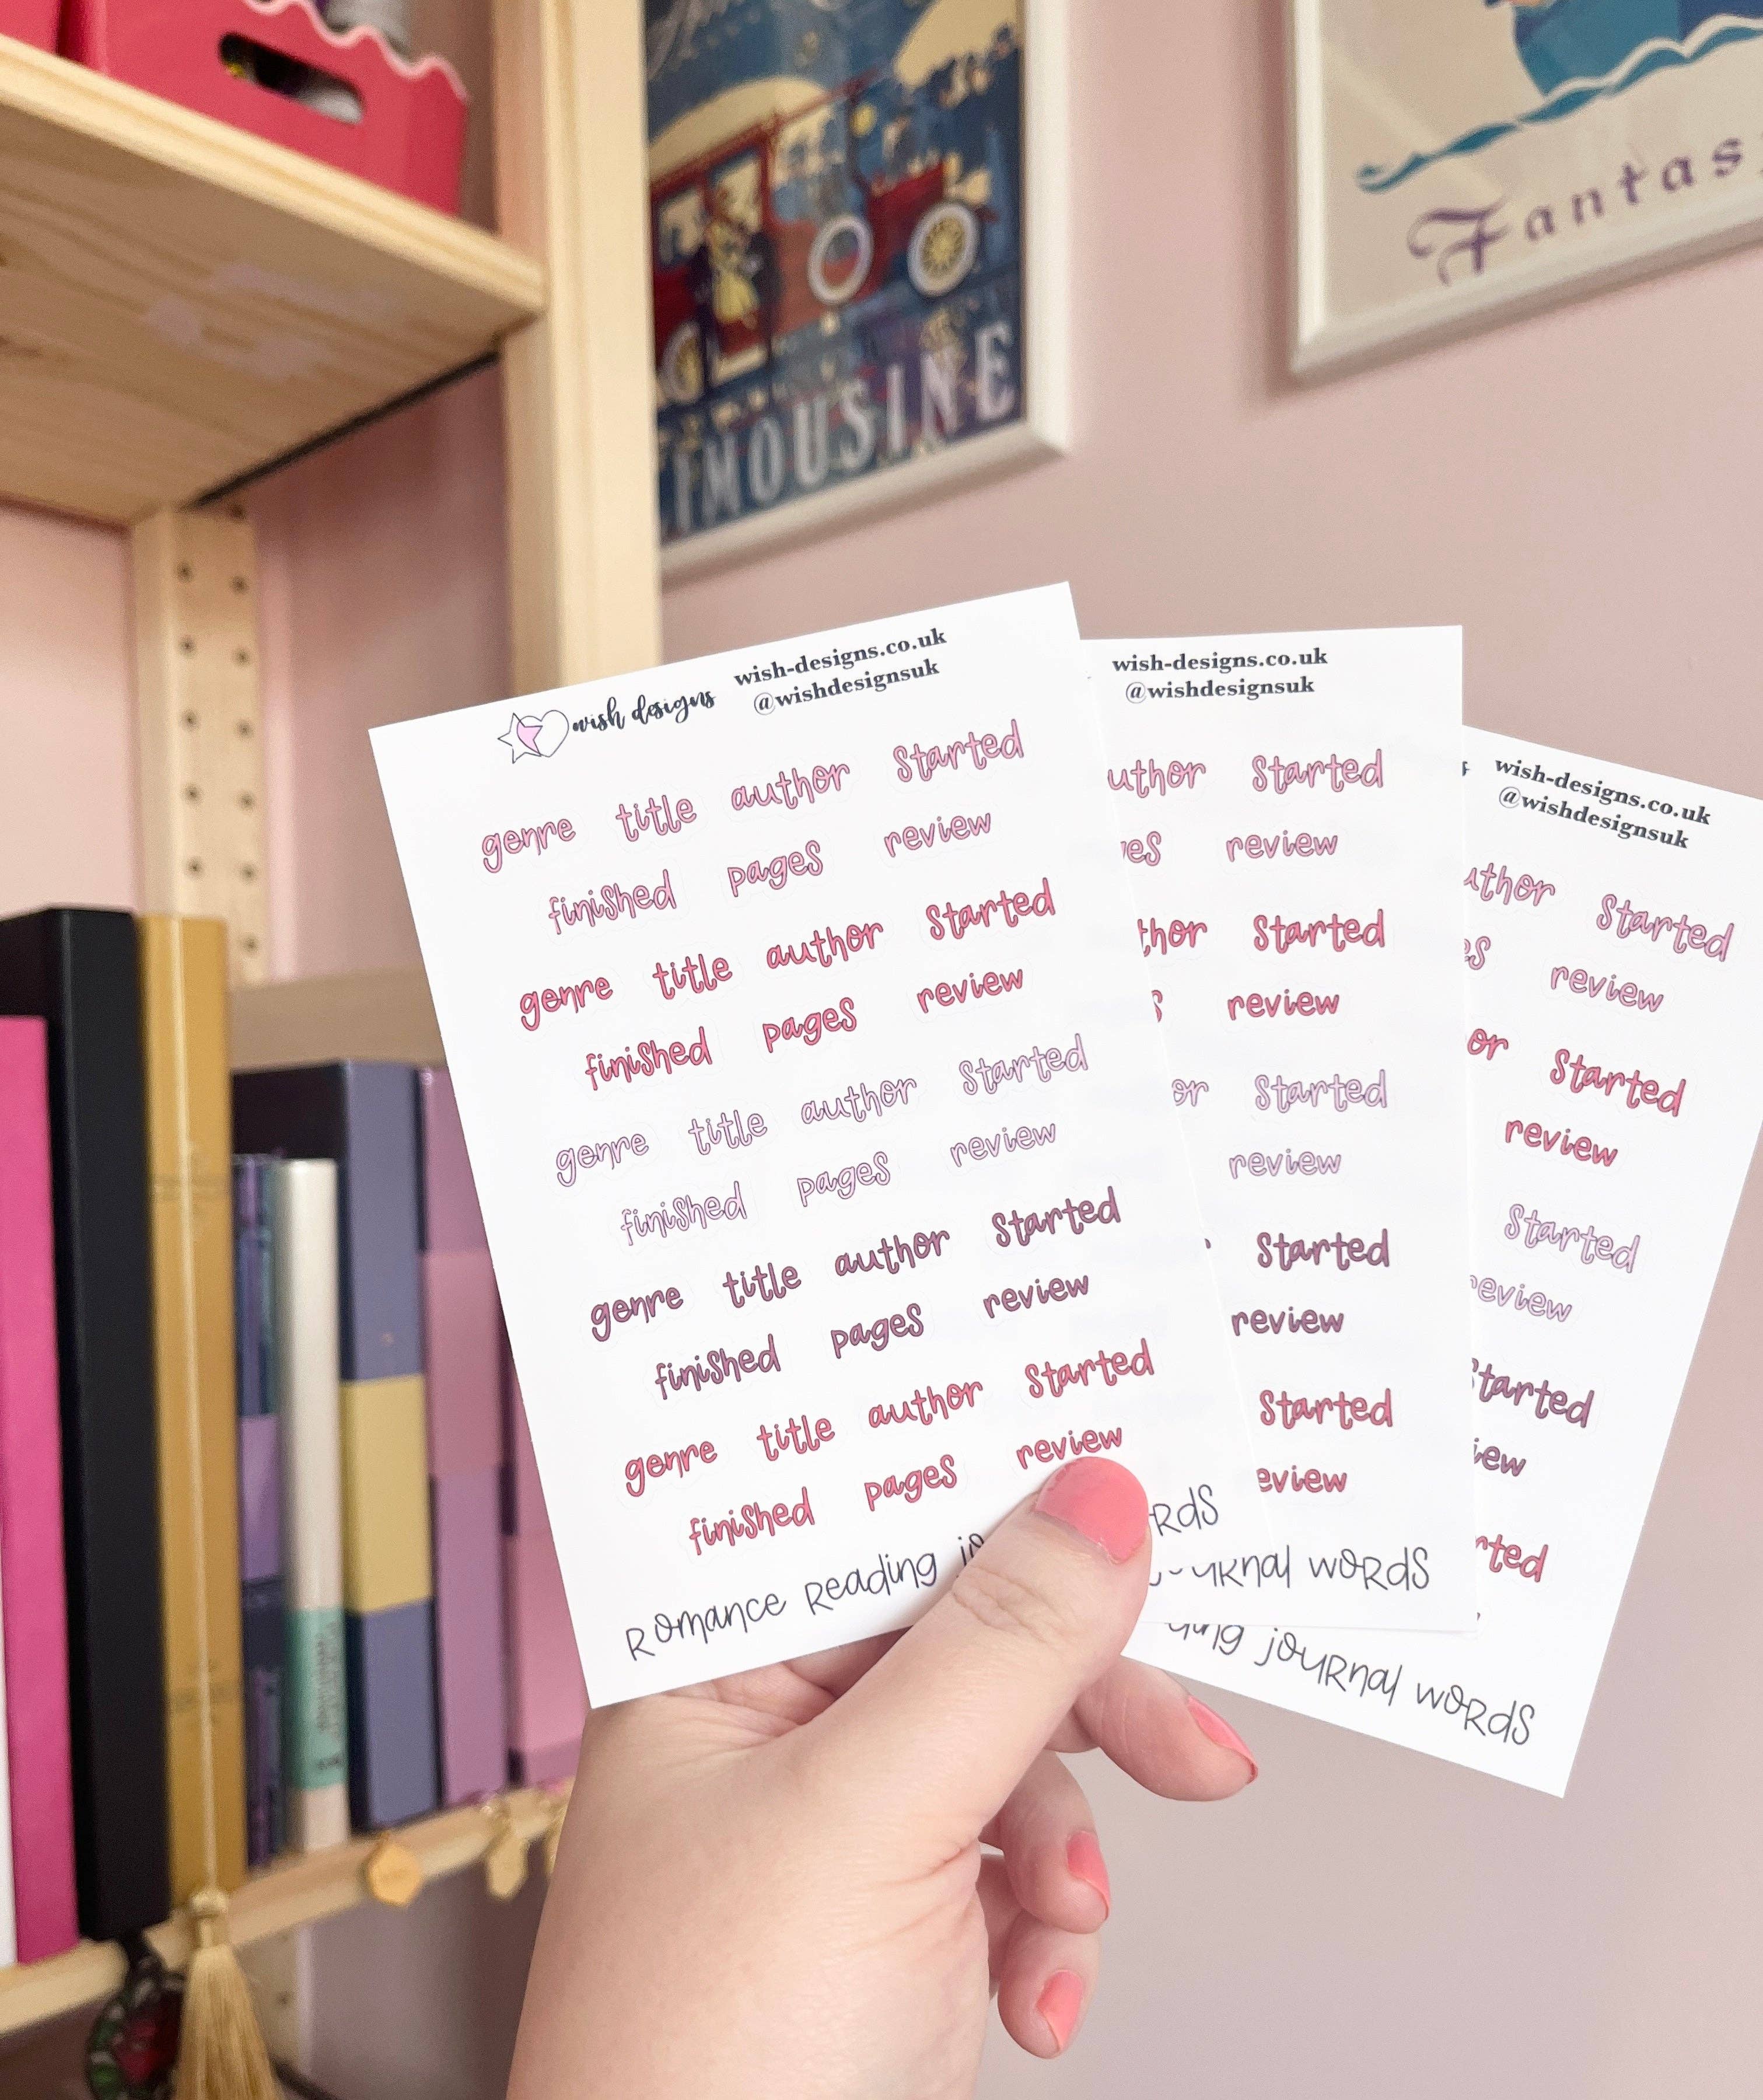 IMOUSINE
Fantas
wish designs
wish-designs.co.uk
@wishdesignsuk
genre title author Started
finished pages review
genre title author Started
finished pages review
genre title author Started
finished pages review
genre title author Started
finished pages review
genre title author Started
finished pages review
Romance Reading jo
wish-designs.co.uk
@wishdesignsuk
uthor Started
es review
thor Started
s review
or Started
review
Started
review
Started
eview
RdS
urnal woRdS
wish-designs.co.uk
@wishdesignsuk
uthor Started
es review
or Started
review
Started
review
Started
iew
rted
ding jouRnal woRdS